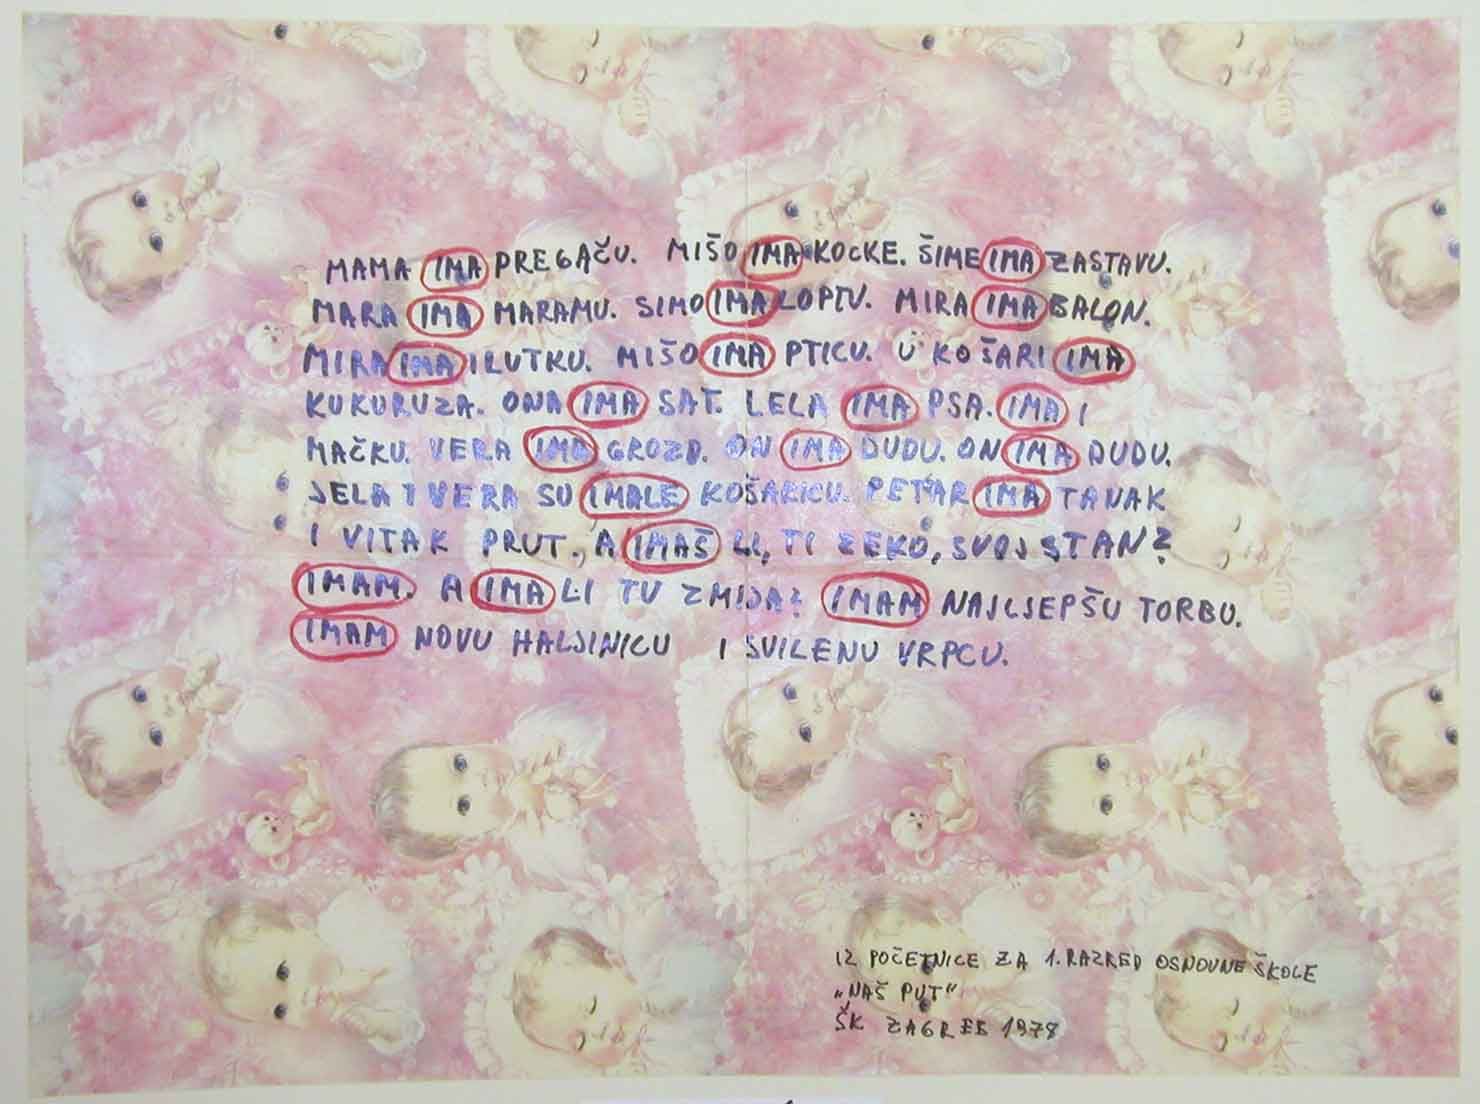 MAMA IMA PREGAČU. MIŠO IMA KOCKE. ŠIME IMA ZASTAVU.
MARA IMA MARAMU. SIMO IMA LOPTU. MIRA IMA BALON.
MIRA IMA ILUTKU. MIŠO IMA PTICU. U KOŠARI IMA
KUKURUZA. ONA IMA SAT. LELA IMA PSA. IMA I
MAČKU. VERA IMA GROZD. ON IMA DUDU. ON IMA DUDU.
JELA I VERA SU IMALE KOŠARICU. PETAR IMA TANAK
I VITAK PRUT, A IMAŠ LI, TI ZEKO, SVOJ STAN?
IMAM. A IMA LI TU ZMIJA? IMAM NAJLJEPŠU TORBU.
IMAM NOVU HALJINICU I SVILENU VRPCU.
IZ POČETNICE ZA 1. RAZRED OSNOVNE ŠKOLE
„NAŠ PUT“
ŠK ZAGREB 1978